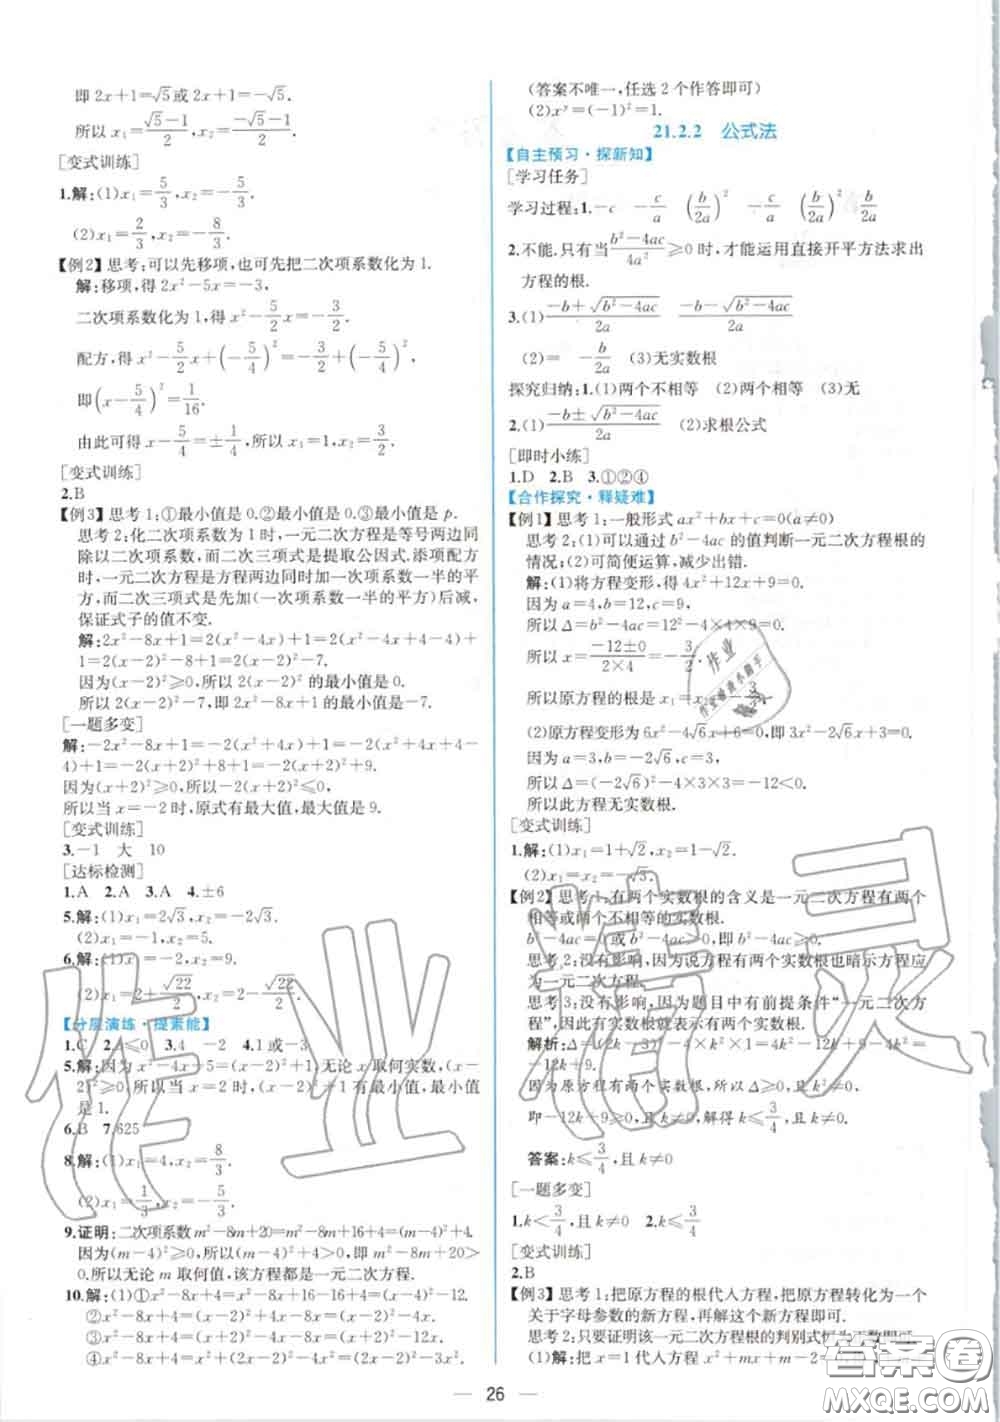 即2x+1=√5或2x+1=-√5.
所以x₁=(√5-1)/2,x₂=(-√5-1)/2.
[变式训练]
1.解:(1)x₁=5/3,x₂=-5/3.
(2)x₁=2/3,x₂=-8/3.
【例2】思考:可以先移项,也可先把二次项系数化为1.
解:移项,得2x²-5x=-3,
二次项系数化为1,得x²-5/2x=-3/2.
配方,得x²-5/2x+(-5/4)²=-3/2+(-5/4)²,
即(x-5/4)²=1/16.
由此可得x-5/4=±1/4,所以x₁=1,x₂=3/2.
[变式训练]
2.B
【例3】思考1:①最小值是0.②最小值是0.③最小值是p.
思考2:化二次项系数为1时,一元二次方程是等号两边同
除以二次项系数,而二次三项式是提取公因式.添项配方
时,一元二次方程是方程两边同时加一次项系数一半的平
方,而二次三项式是先加(一次项系数一半的平方)后减,
保证式子的值不变.
解:2x²-8x+1=2(x²-4x)+1=2(x²-4x+4-4)+
1=2(x-2)²-8+1=2(x-2)²-7.
因为(x-2)²≥0,所以2(x-2)²的最小值是0.
所以2(x-2)²-7,即2x²-8x+1的最小值是-7.
[一题多变]
解:-2x²-8x+1=-2(x²+4x)+1=-2(x²+4x+4-
4)+1=-2(x+2)²+8+1=-2(x+2)²+9.
因为(x+2)²≥0,所以-2(x+2)²≤0.
所以当x=-2时,原式有最大值,最大值是9.
[变式训练]
3.-1 大 10
[达标检测]
1.A 2.A 3.A 4.±6
5.解:(1)x₁=2√3,x₂=-2√3.
(2)x₁=-1,x₂=5.
6.解:(1)x₁=-2,x₂=9.
(2)x₁=-2+√22/2,x₂=-2-√22/2.
【分层演练·提素能】
1.C 2.≤0 3.4 -2 4.1或-3
5.解:因为x²-4x+5=(x-2)²+1,无论x取何实数,(x-
2)²≥0,所以当x=2时,(x-2)²+1有最小值,最小值
是1.
6.B 7.625
8.解:(1)x₁=4,x₂=8/3.
(2)x₁=1/3,x₂=-5/3.
9.证明:二次项系数m²-8m+20=m²-8m+16+4=(m-4)²+4.
因为(m-4)²≥0,所以(m-4)²+4>0,即m²-8m+20>
0.所以无论m取何值,该方程都是一元二次方程.
10.解:(1)①x²-8x+4=x²-8x+16-16+4=(x-4)²-12.
②x²-8x+4=(x-2)²+4x-8x=(x-2)²-4x.
③x²-8x+4=(x+2)²-4x-8x=(x+2)²-12x.
(答案不唯一,任选2个作答即可)
(2)xʸ=(-1)²=1.
21.2.2 公式法
【自主预习·探新知】
[学习任务]
学习过程:1.-c -c/a (b/2a)² (b/2a)² b/2a
2.不能.只有当(b²-4ac)/4a²≥0时,才能运用直接开平方法求出
方程的根.
3.(1)(-b+√(b²-4ac))/2a (-b-√(b²-4ac))/2a
(2)= -b/2a (3)无实数根
探究归纳:1.(1)两个不相等 (2)两个相等 (3)无
2.(1)(-b±√(b²-4ac))/2a (2)求根公式
[即时小练]
1.D 2.B 3.①②④
【合作探究·释疑难】
【例1】思考1:一般形式ax²+bx+c=0(a≠0)
思考2:(1)可以通过b²-4ac的值判断一元二次方程根的
情况;(2)可简便运算,减少出错.
解:(1)将方程变形,得4x²+12x+9=0.
因为a=4,b=12,c=9,
所以Δ=b²-4ac=12²-4×4×9=0.
所以x=(-12±0)/(2×4)=-3/2.
所以原方程的根是x₁=x₂=-3/2.
(2)原方程变形为6x²-4√6x+6=0,即3x²-2√6x+3=0.
因为a=3,b=-2√6,c=3,
所以Δ=(-2√6)²-4×3×3=-12<0.
所以此方程无实数根.
[变式训练]
1.解:(1)x₁=1+√2,x₂=1-√2.
(2)x₁=x₂=-√3.
【例2】思考1:有两个实数根的含义是一元二次方程有两个
相等或两个不相等的实数根.
b²-4ac=0或b²-4ac>0,即b²-4ac≥0.
思考2:没有影响,因为说方程有两个实数根也暗示方程应
为一元二次方程.
思考3:没有影响,因为题目中有前提条件“一元二次方
程”,因此有实数根就表示有两个实数根.
解析:Δ=(2k-3)²-4×k×1=4k²-12k+9-4k²=
-12k+9.
因为原方程有两个实数根,所以Δ≥0,且k≠0,
即-12k+9≥0,且k≠0,解得k≤3/4,且k≠0.
答案:k≤3/4,且k≠0
[一题多变]
1.k<3/4,且k≠0 2.k≤3/4
[变式训练]
2.B
【例3】思考1:把原方程的根代入方程,把原方程转化为一个
关于字母参数的新方程,再解这个新方程即可.
思考2:只要证明该一元二次方程根的判别式恒为正数即可.
(1)解:把x=1代入方程x²+mx+m-2=
26
作业精灵
答案圈
MXQE.COM